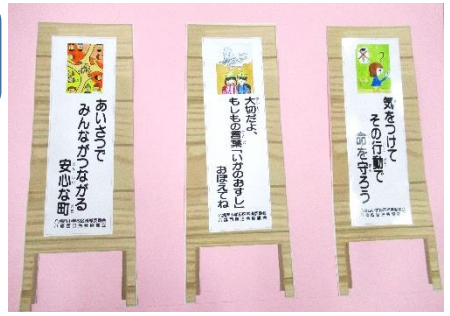 あいさつで
みんながつながる
安心な町
大切だよ、
もしもの言葉「いかのおすし」
おぼえてね
気をつけて
その行動で
命を守ろう